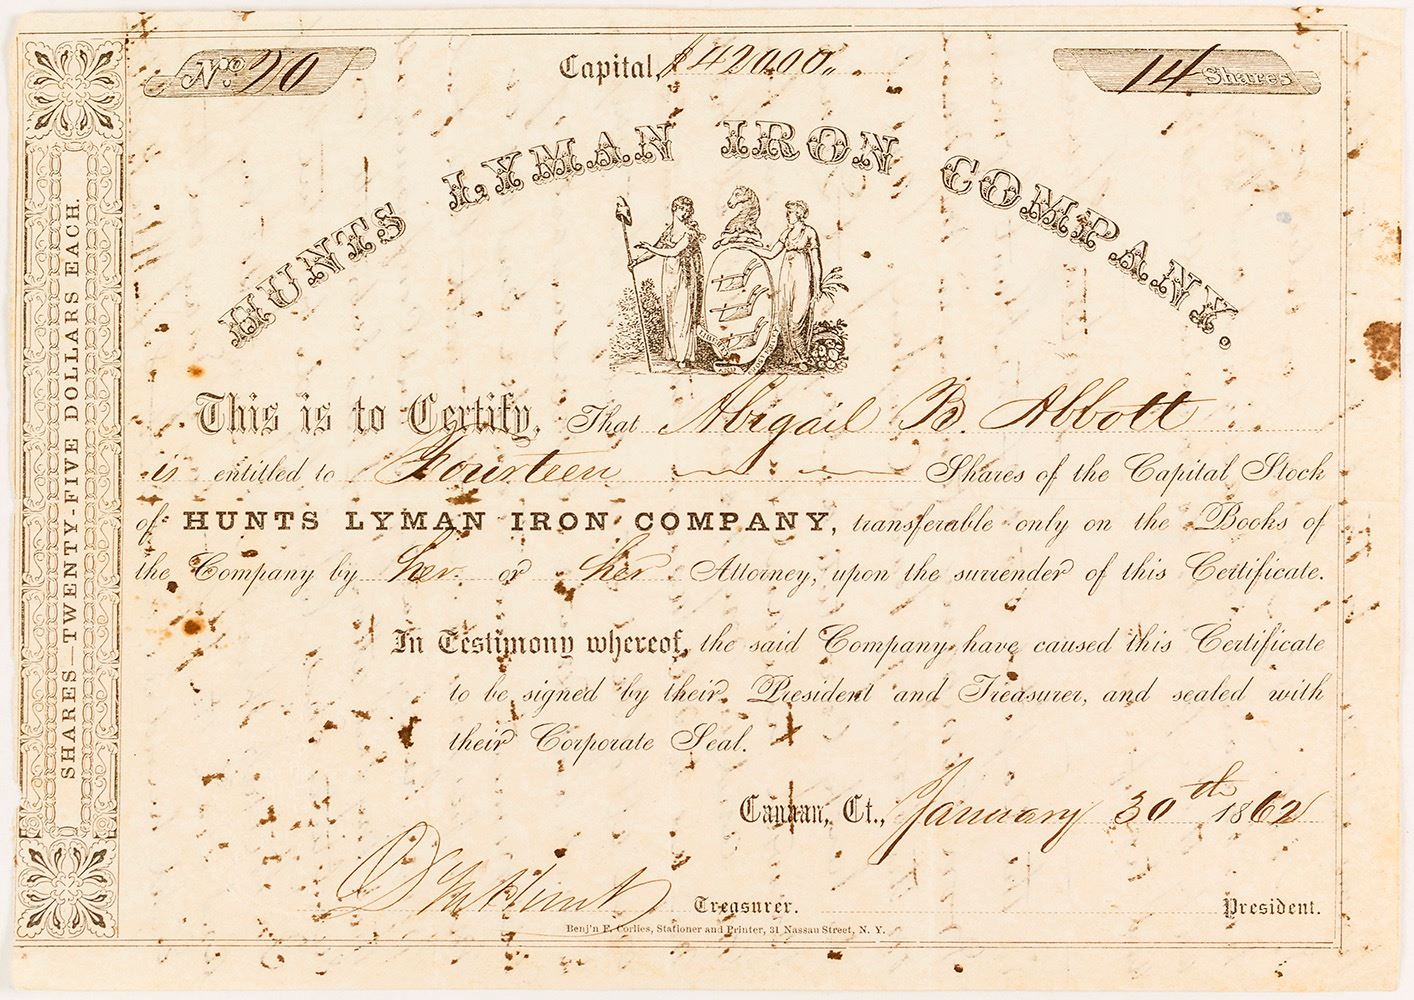 No. 20
Capital, $42000..
14 Shares
HUNTS LYMAN IRON COMPANY.
SHARES—TWENTY-FIVE DOLLARS EACH.
This is to Certify, That Abigail B. Abbott
is entitled to Fourteen Shares of the Capital Stock
of HUNTS LYMAN IRON COMPANY, transferable only on the Books of
the Company by her or her Attorney, upon the surrender of this Certificate.
In Testimony whereof, the said Company have caused this Certificate
to be signed by their President and Treasurer, and sealed with
their Corporate Seal.
Canaan, Ct., January 30th 1862
Hunt Treasurer. President.
Benj'n F. Corlies, Stationer and Printer, 31 Nassau Street, N. Y.